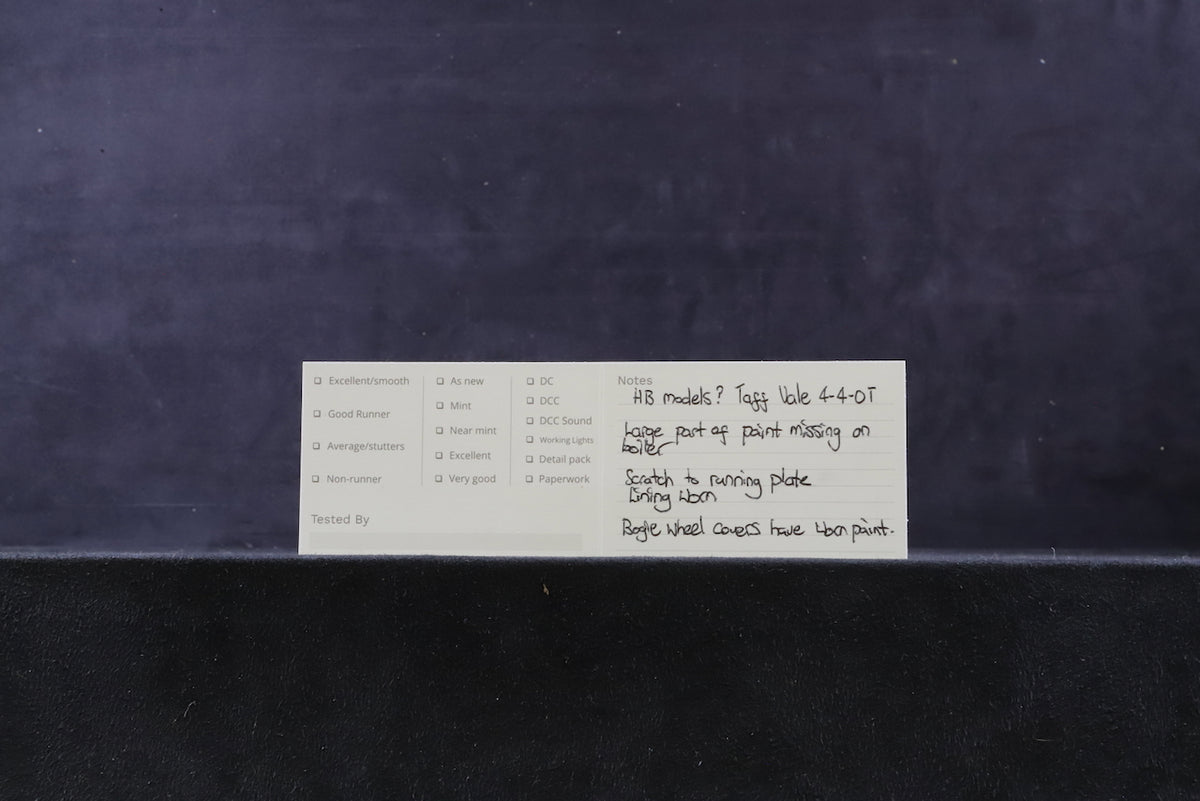 Excellent/smooth
Good Runner
Average/stutters
Non-runner
As new
Mint
Near mint
Excellent
Very good
DC
DCC
DCC Sound
Working Lights
Detail pack
Paperwork
Tested By
Notes
HB models? Taff Vale 4-4-0T
Large part of paint missing on
boiler
Scratch to running plate
Lining worn
Bogie wheel covers have worn paint.